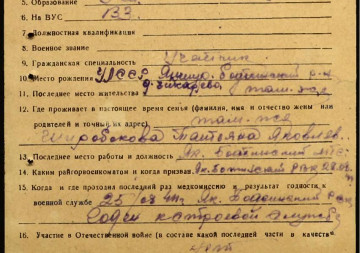 5. Образование
6. На ВУС 133
7. Должностная квалификация
8. Военное звание
9. Гражданская специальность Участник
10. Место рождения УАССР Якшур-Бодьинский р-н
11. Последнее место жительства д. Чекарово, там-же
12. Где проживает в настоящее время семья (фамилия, имя и отчество жены или
родителей и точный адрес) там-же
Татьяна Яковлев.
13. Последнее место работы и должность Як. Бодьинский
14. Каким райгорвоенкоматом и когда призван Як. Бодьинский РВК
15. Когда и где проходил последний раз медкомиссию и результат годности к
военной службе 25/ Як. Бодьинский РВК
Годен к строевой службе
16. Участие в Отечественной войне (в составе какой последней части в качестве